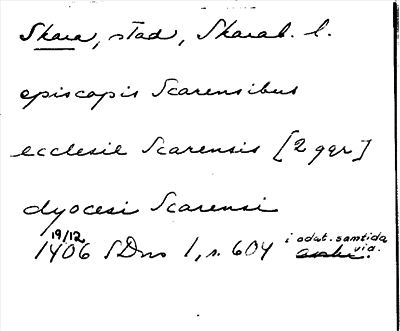 Skara, stad, Skarab. l.
episcopis Scarensibus
ecclesie Scarensis [2 ggr]
dyocesi Scarensi
19/12
1406 SDns 1, s. 604 i odat. samtida
vid.